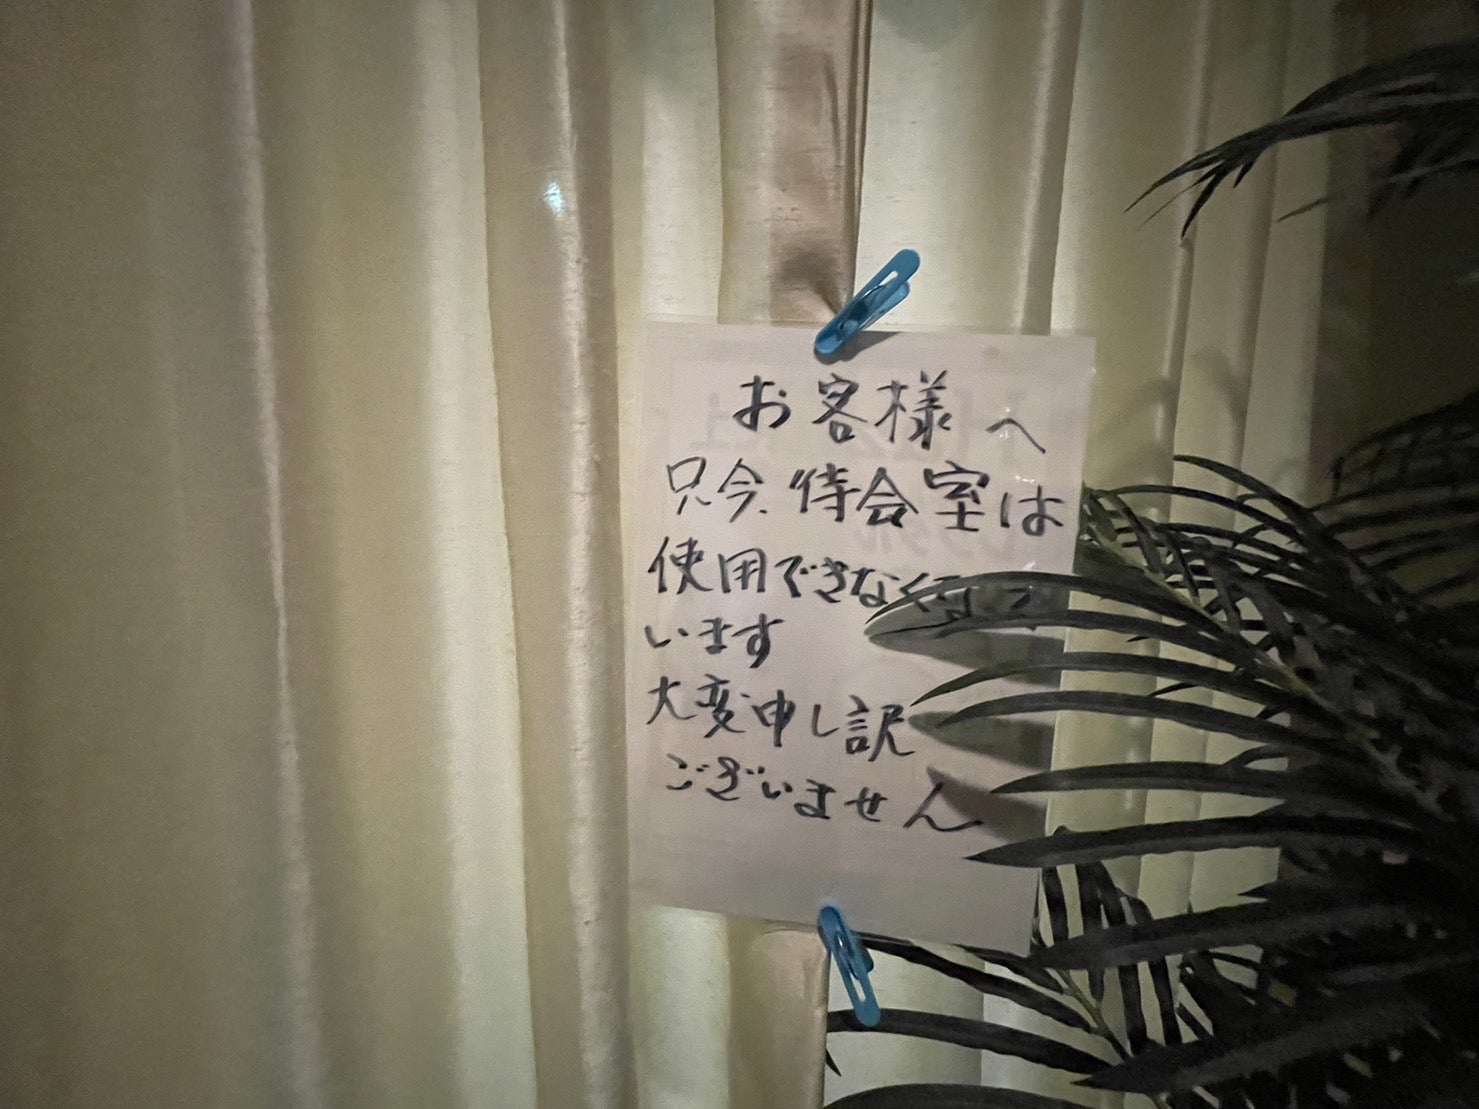 お客様へ
只今、待会室は
使用できなくなって
います
大変申し訳
ございません